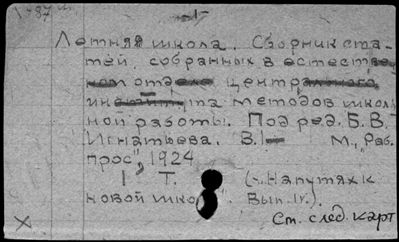 1-87м
Летняя школа. Сборник ста-
тей, собранных в естеств
ном отделе центрального
института методов школь
ной работы. Под ред. Б.В.
Игнатьева. В.1 М., „Раб.
прос", 1924.
1 Т. (-„На путях к
новой школ". Вып. IV.).
См. след. карт